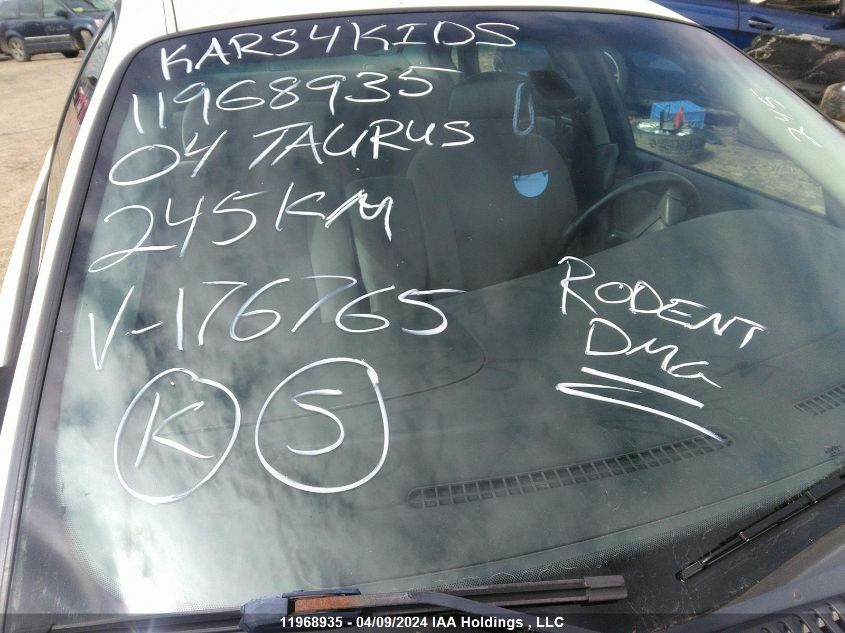 KARS4KIDS
11968935
04 TAURUS
245KM
V-176765
K S
RODENT
DMG
245
11968935 - 04/09/2024 IAA Holdings , LLC